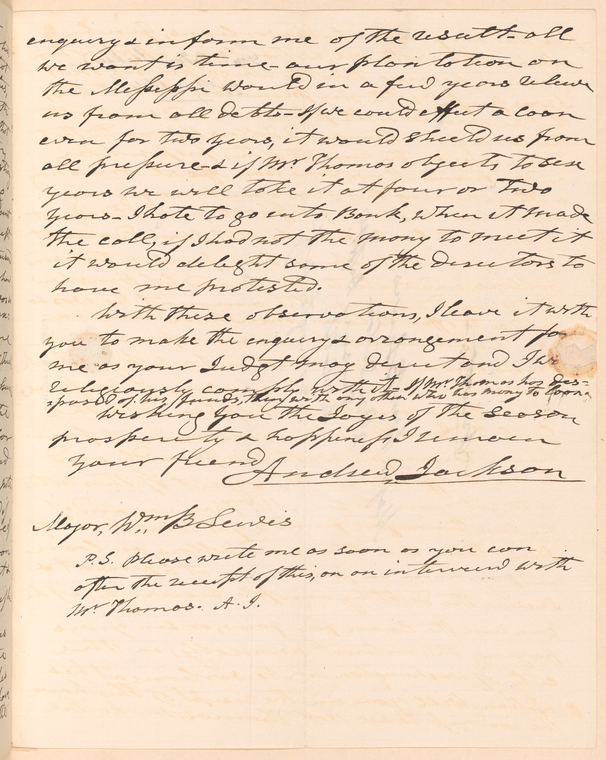 enquiry & inform me of the result- all
we want is time- our plantation on
the Mississippi would in a few years relieve
us from all debts- If we could effect a loan
even for two years, it would shield us from
all pressure- & if Mr Thomas objects to
years we will take it at four or Two
years- I hate to go into Bank, when it made
the call, if I had not the mony to meet it
it would delight some of the directors to
have me protested.
With these observations, I leave it with
you to make the enquiry & arrangement for
me as your Judgt may direct and I
religiously comply with it- If Mr. Thomas has dis-
sposed of his funds, then with any other who has mony to loan.
Wishing you the Joys of the Season
prosperity & happiness I remain
your friend
Andrew Jackson
Major, Wm B Lewis
P.S. Please write me as soon as you can
after the receipt of this, on an interview with
Mr Thomas. A. J.